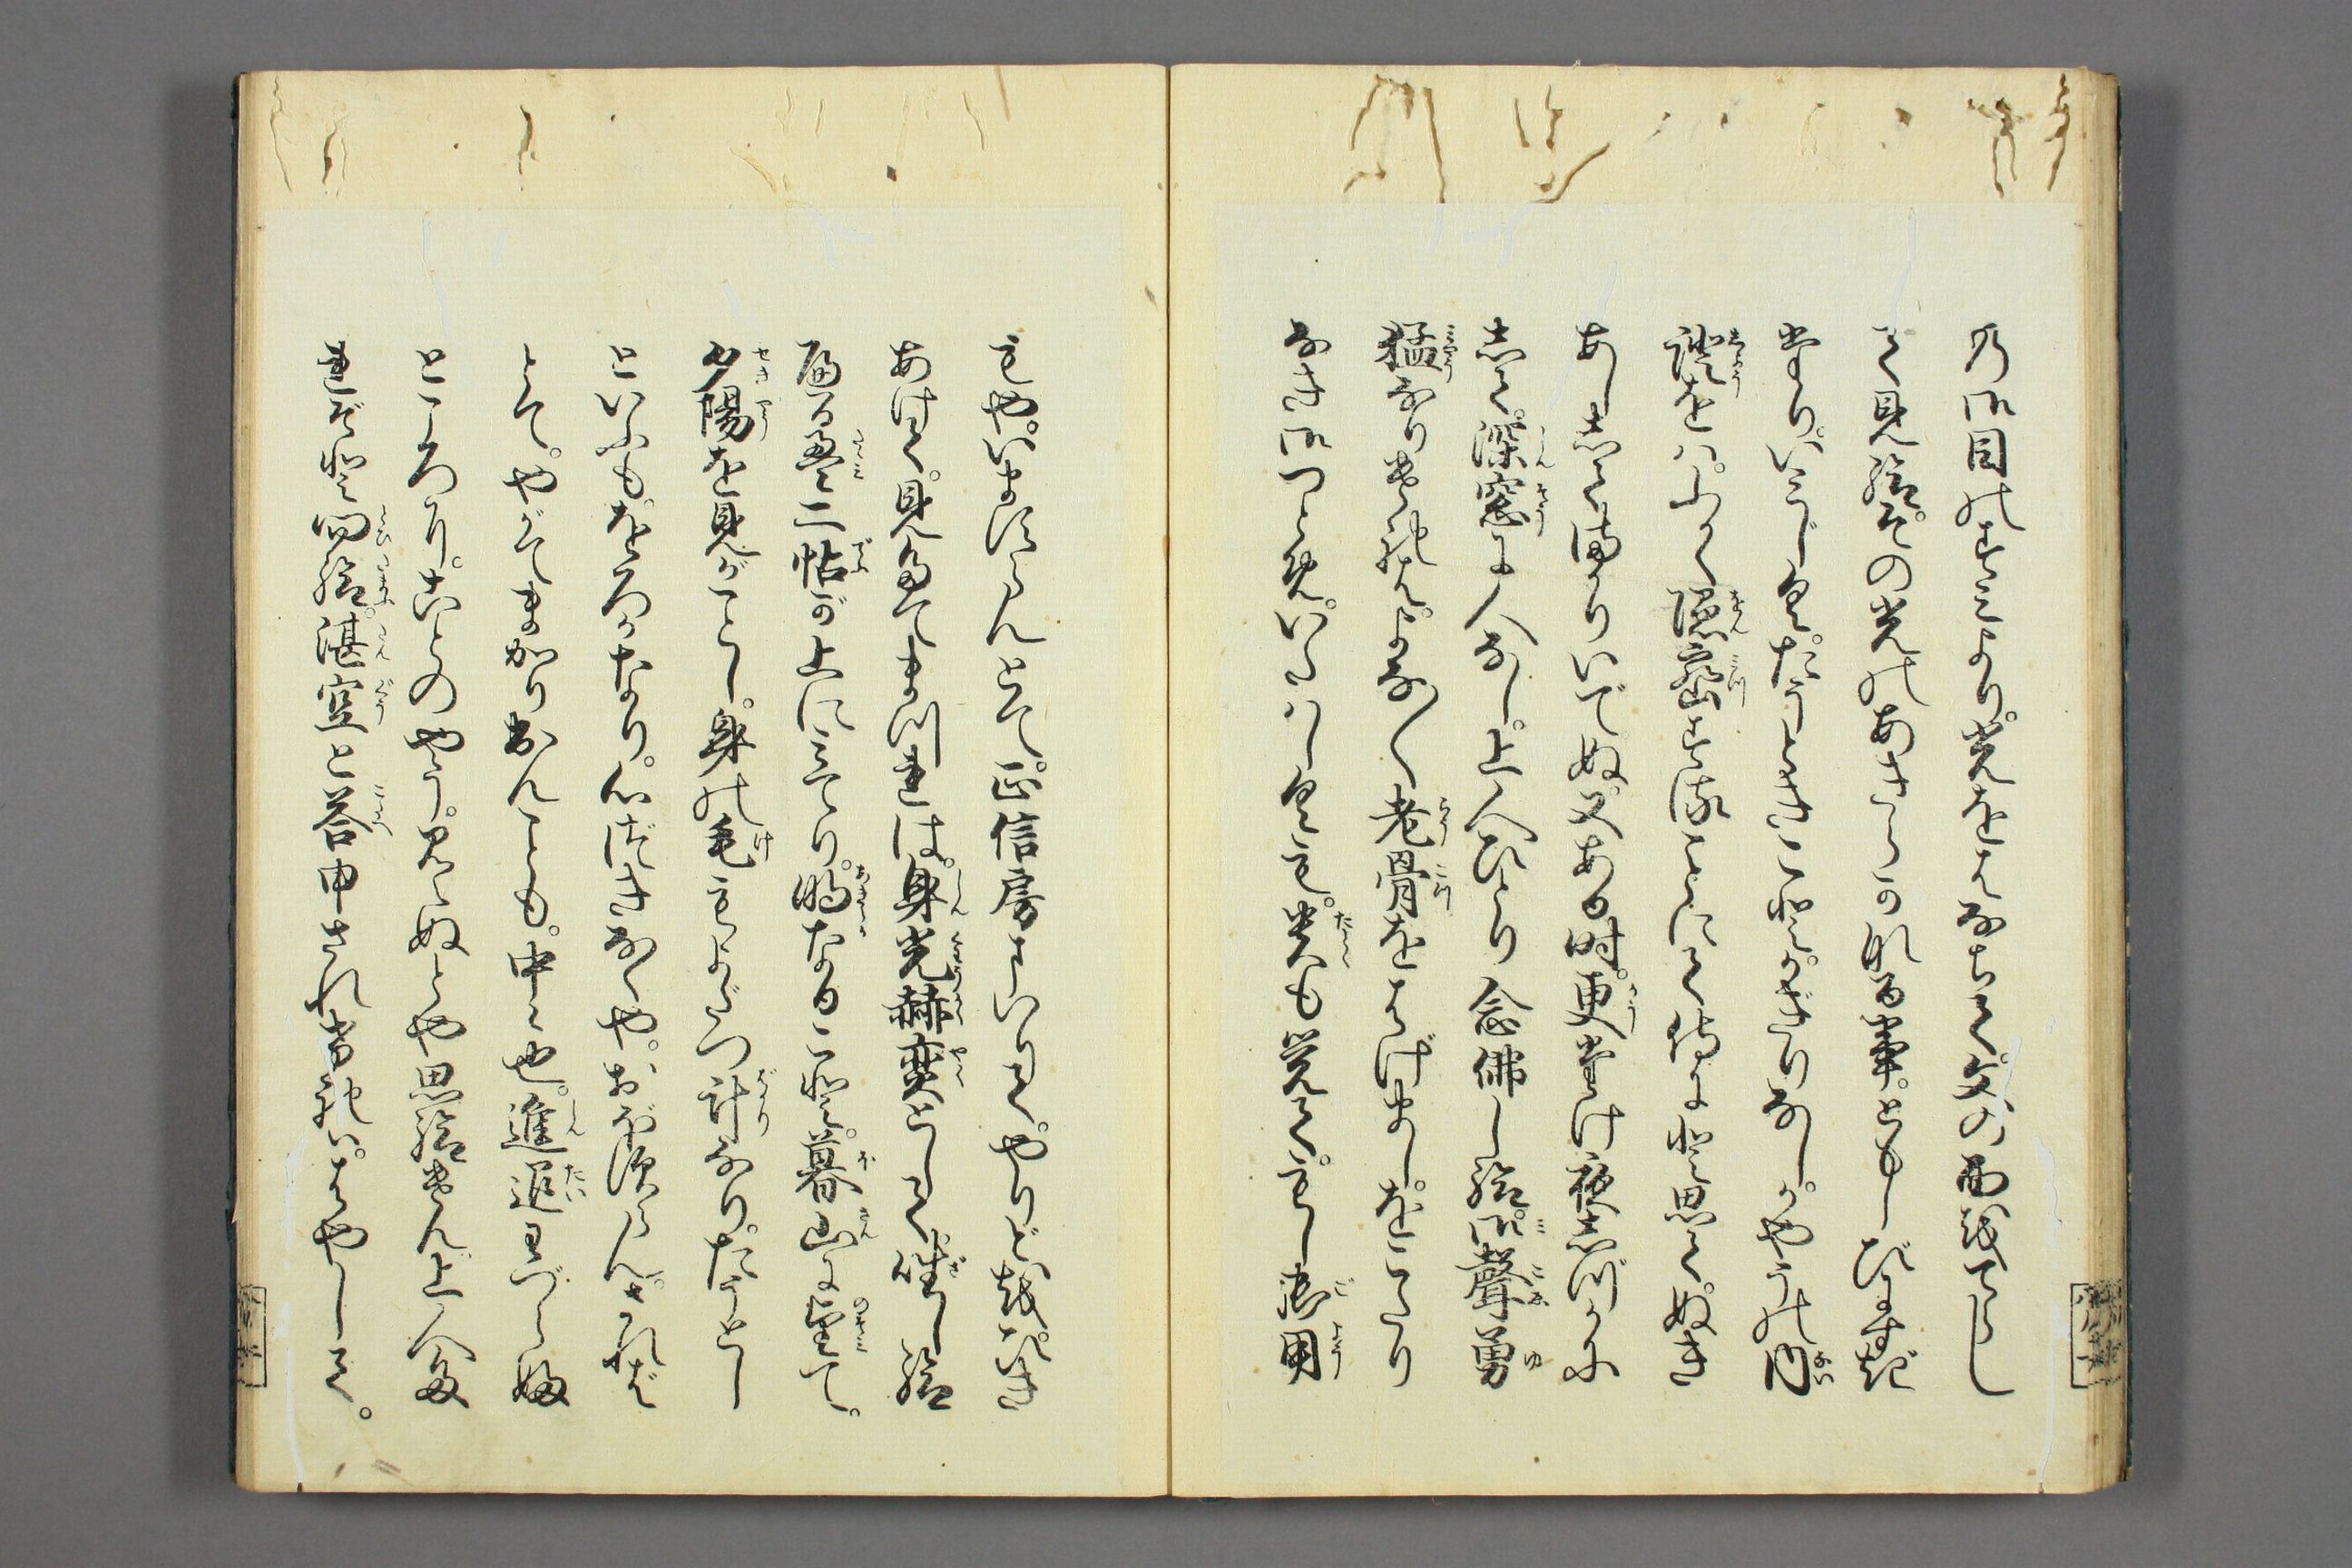 乃御目のすみより。光をはなちて。文の面をてらし
て見給。その光のあきらかなる事。ともしびにすぎ
たり。いみじくたうときこと。かぎりなし。かやうの内
證をば。ふかく隠密することにて侍にと思て。ぬき
あししてまかりいでぬ。又ある時。更たけ夜しづかに
して。深窓に人なし。上人ひとり念佛し給。御聲勇
猛なりければ。よな〳〵老骨をはげまし。をこたり
なき御つとめ。いたはしくも。貴も覚て。もし御用
もや。いますらんとて。正信房まいりて。やり戸を。ひき
あけて。見たてまつれば。身光赫奕として。坐し給
へる畳二帖が上にみてり。明なること。暮山に望て。
夕陽を見がごとし。身の毛もよだつ計なり。たうとし
といふも。をろかなり。心づきなくや。おぼすらん。されば
とて。やがてまかり出んことも。中々也。進退わづらふ
ところに。こはとのやう。見えぬとや思給けん。上人た
れぞと問給。湛空と答申されければ。はやして。